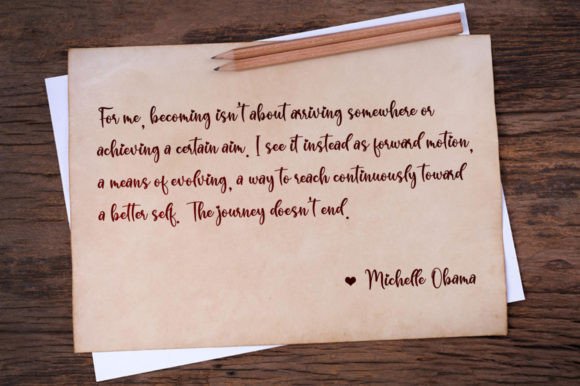 For me, becoming isn't about arriving somewhere or
achieving a certain aim. I see it instead as forward motion,
a means of evolving, a way to reach continuously toward
a better self. The journey doesn't end.
♥ Michelle Obama